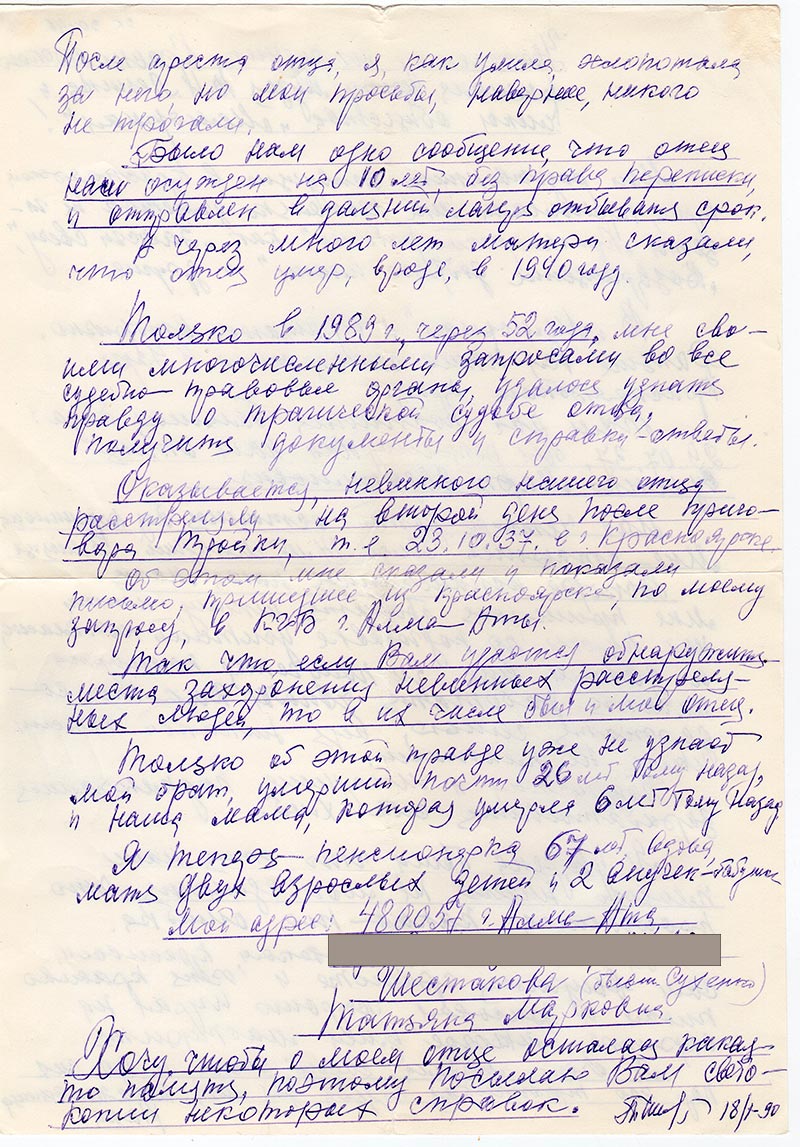 После ареста отца, я, как умела, хлопотала
за него но мои просьбы, наверное, никого
не трогали.
Было нам одно сообщение, что отец
наш осужден на 10 лет, без права переписки,
и отправлен в дальний лагерь отбывать срок.
А через много лет матери сказали,
что отец умер, вроде, в 1940 году.
Только в 1989 г., через 52 года, мне сво-
ими многочисленными запросами во все
судебно-правовые органы, удалось узнать
правду о трагической судьбе отца,
получить документы и справки-ответы.
Оказывается, невинного нашего отца
расстреляли на второй день после приго-
вора Тройки, т.е. 23.10.37. в г. Красноярске.
Об этом мне сказали и показали
письмо, пришедшее из Красноярска, по моему
запросу, в КГБ г. Алма-Аты.
Так что, если Вам удастся обнаружить
места захоронения невинных расстрелян-
ных людей, то в их числе был и мой отец.
Только об этой правде уже не узнают
мой брат, умерший почти 26 лет тому назад,
и наша мама, которая умерла 6 лет тому назад
Я теперь пенсионерка 67 лет, вдова,
мать двух взрослых детей и 2 внучек-бабушка
Мой адрес: 480057 г. Алма-Ата
Шестакова (бывш. Сухенко)
Татьяна Марковна.
Хочу, чтобы о моем отце осталась какая-
то память, поэтому посылаю Вам свето-
копии некоторых справок. 18/I-90